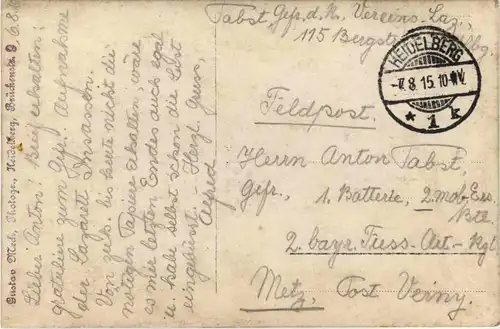 Tabst, Gefr. d. R. Vereins-Laz.
115 Bergstr.
HEIDELBERG
-7.8.15.10-11V.
* 1 k
Feldpost.
Herrn Anton Tabst,
Gefr., 1. Batterie, 2. mob. Ers.
Btl.
2. bayr. Fuss-Art-Rgt.
Metz, Post Verny.
6.8.
Lieber Anton! Brief erhalten;
gratuliere zum Gefr. Aufnahme
der Lazarett Insassen.
Von zck. bis heute nicht die
nötigen Papiere erhalten, wäre
es mir letzten Endes auch egal
u. habe selbst schon die Lust
eingebüsst. Herzl. Gruss,
Alfred
Gustav Mech, Photogr., Heidelberg, Brückenstr. 9